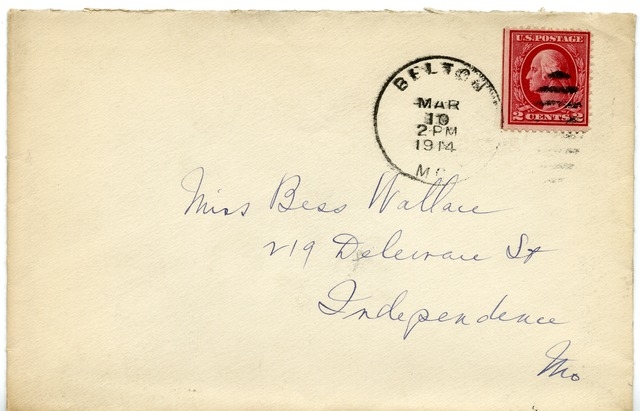 U.S. POSTAGE
2 CENTS 2
BELTON
MAR
10
2 PM
1914
MO
Miss Bess Wallace
219 Deleware St
Independence
Mo